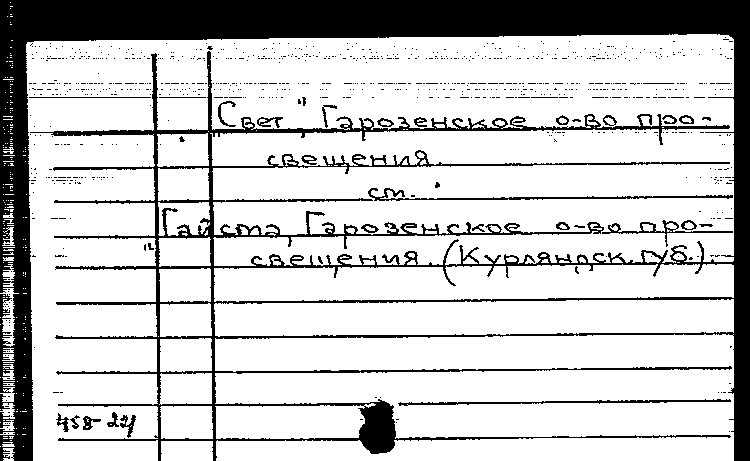 "Свет", Гарозенское о-во про-
свещения.
см.
"Гайсма, Гарозенское о-во про-
свещения. (Курляндск. губ.).
458-22/